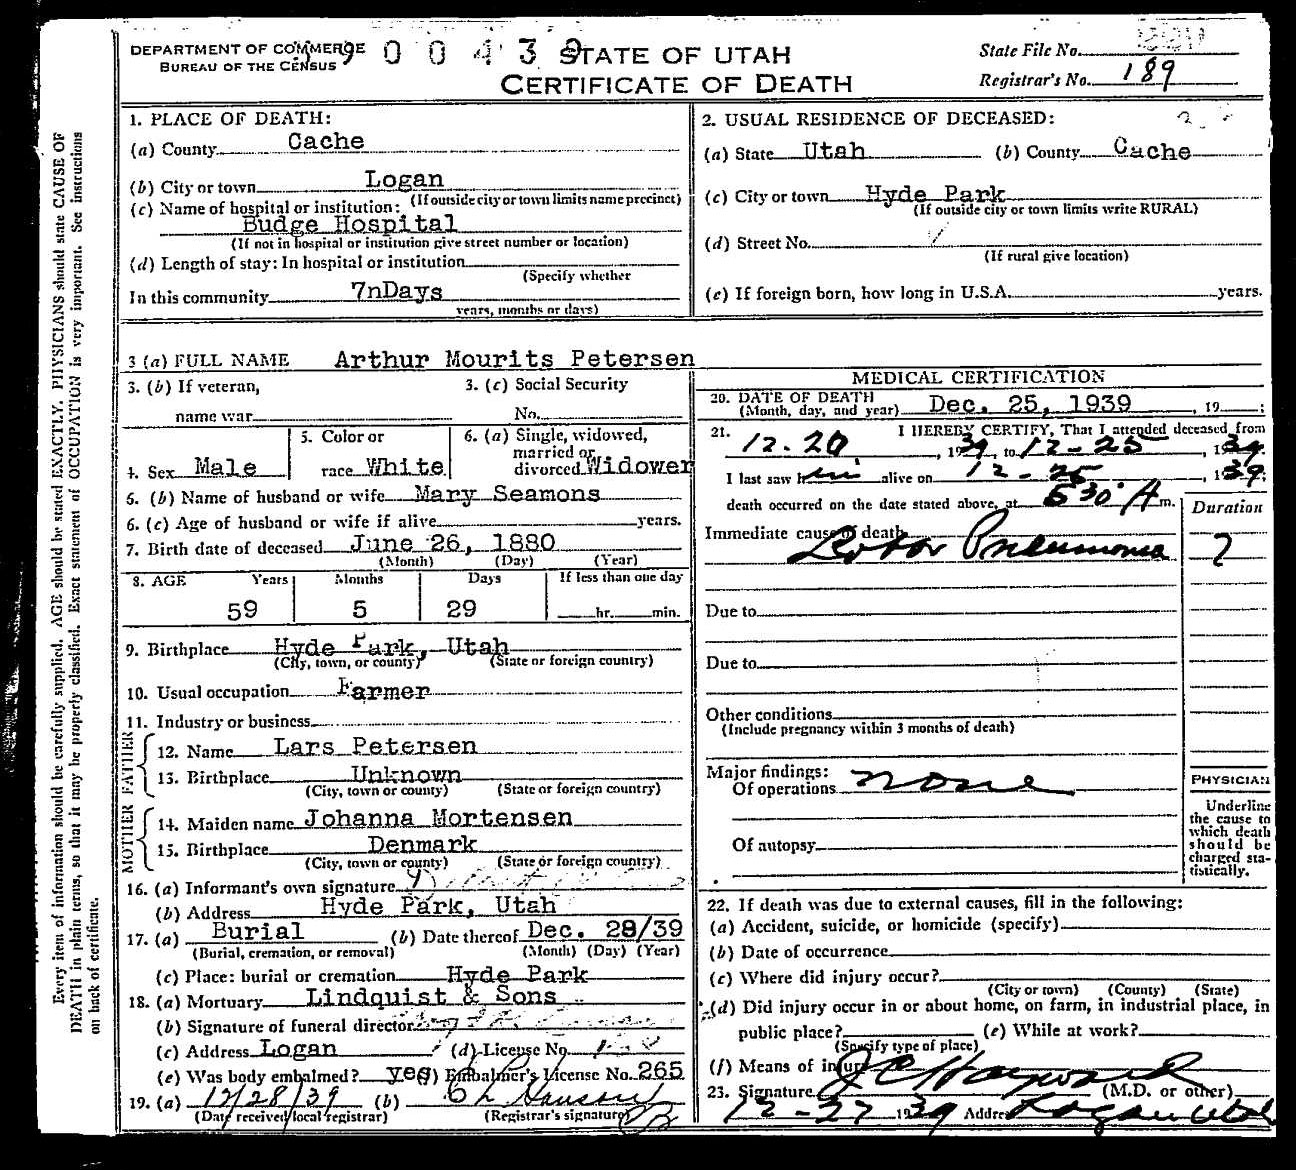 DEPARTMENT OF COMMERCE
BUREAU OF THE CENSUS
9 0 0 4 3 9
STATE OF UTAH
CERTIFICATE OF DEATH
State File No.
Registrar's No. 189
1. PLACE OF DEATH:
(a) County Cache
(b) City or town Logan
(If outside city or town limits name precinct)
(c) Name of hospital or institution:
Budge Hospital
(If not in hospital or institution give street number or location)
(d) Length of stay: In hospital or institution
(Specify whether
In this community 7nDays
years, months or days)
2. USUAL RESIDENCE OF DECEASED:
(a) State Utah (b) County Cache
(c) City or town Hyde Park
(If outside city or town limits write RURAL)
(d) Street No.
(If rural give location)
(e) If foreign born, how long in U.S.A. years.
3 (a) FULL NAME Arthur Mourits Petersen
3. (b) If veteran,
name war
3. (c) Social Security
No.
4. Sex Male
5. Color or
race White
6. (a) Single, widowed,
married or
divorced Widower
6. (b) Name of husband or wife Mary Seamons
6. (c) Age of husband or wife if alive years.
7. Birth date of deceased June 26, 1880
(Month) (Day) (Year)
8. AGE Years Months Days If less than one day
59 5 29 hr. min.
9. Birthplace Hyde Park, Utah
(City, town, or county) (State or foreign country)
10. Usual occupation Farmer
11. Industry or business
FATHER
12. Name Lars Petersen
13. Birthplace Unknown
(City, town or county) (State or foreign country)
MOTHER
14. Maiden name Johanna Mortensen
15. Birthplace Denmark
(City, town or county) (State or foreign country)
16. (a) Informant's own signature
(b) Address Hyde Park, Utah
17. (a) Burial (b) Date thereof Dec. 28/39
(Burial, cremation, or removal) (Month) (Day) (Year)
(c) Place: burial or cremation Hyde Park
18. (a) Mortuary Lindquist & Sons
(b) Signature of funeral director
(c) Address Logan (d) License No.
(e) Was body embalmed? yes (f) Embalmer's License No. 265
19. (a) 12/28/39 (b)
(Date received local registrar) (Registrar's signature)
MEDICAL CERTIFICATION
20. DATE OF DEATH
(Month, day, and year) Dec. 25, 1939, 19 ;
21. I HEREBY CERTIFY, That I attended deceased from
12-20, 1939, to 12-25, 1939.
I last saw him alive on 12-25, 1939;
death occurred on the date stated above, at 5 30 A m.
Duration
Immediate cause of death
Lobar Pneumonia ?
Due to
Due to
Other conditions
(Include pregnancy within 3 months of death)
Major findings:
Of operations none
Of autopsy
PHYSICIAN
Underline
the cause to
which death
should be
charged sta-
tistically.
22. If death was due to external causes, fill in the following:
(a) Accident, suicide, or homicide (specify)
(b) Date of occurrence
(c) Where did injury occur?
(City or town) (County) (State)
(d) Did injury occur in or about home, on farm, in industrial place, in
public place? (e) While at work?
(Specify type of place)
(f) Means of injury
23. Signature J C Hayward (M.D. or other)
12-27 1939 Address Logan Utah
Every item of information should be carefully supplied. AGE should be stated EXACTLY. PHYSICIANS should state CAUSE OF
DEATH in plain terms, so that it may be properly classified. Exact statement of OCCUPATION is very important. See instructions
on back of certificate.